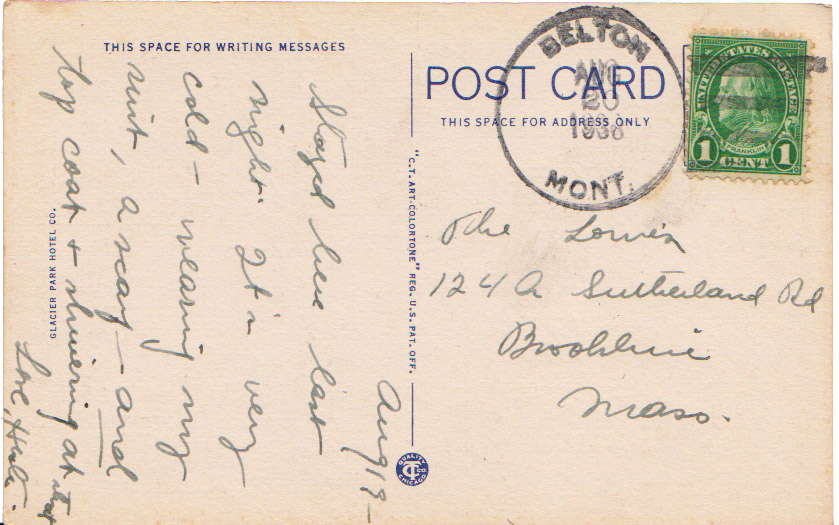 THIS SPACE FOR WRITING MESSAGES
Aug 19 –
Stayed here last
night. It is very
cold – wearing my
suit, a scarf – and
top coat & shivering at that
Love,
GLACIER PARK HOTEL CO.
"C.T. ART-COLORTONE" REG. U.S. PAT. OFF.
QUALITY
CT CO.
CHICAGO
POST CARD
THIS SPACE FOR ADDRESS ONLY
BELTON
AUG
20
1936
MONT.
UNITED STATES POSTAGE
FRANKLIN
1 CENT 1
The
124 A Sutherland Rd
Brookline
Mass.